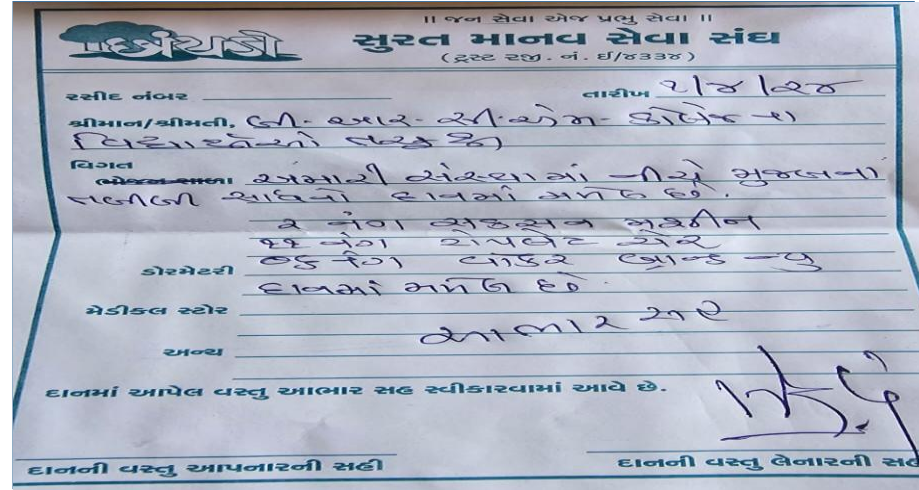 ॥ જન સેવા એજ પ્રભુ સેવા ॥
છાંયડો
સુરત માનવ સેવા સંઘ
(ટ્રસ્ટ રજી. નં. ઈ/૪૩૩૪)
રસીદ નંબર તારીખ ૨/૪/૨૪
શ્રીમાન/શ્રીમતી, બી. આર. સી. એમ. કોલેજ ના
વિદ્યાર્થીઓ તરફથી
વિગત
ભોજન શાળા અમારી સંસ્થામાં નીચે મુજબનાં
તબીબી સાધનો દાનમાં મળેલ છે.
૨ નંગ સકસન મશીન
૧૧ નંગ ટોયલેટ ચેર
નંગ વોકર બ્રાન્ડ ન્યુ
ડોરમેટરી
દાનમાં મળેલ છે.
મેડીકલ સ્ટોર
આભાર સહ
અન્ય
દાનમાં આપેલ વસ્તુ આભાર સહ સ્વીકારવામાં આવે છે.
દાનની વસ્તુ આપનારની સહી દાનની વસ્તુ લેનારની સહી